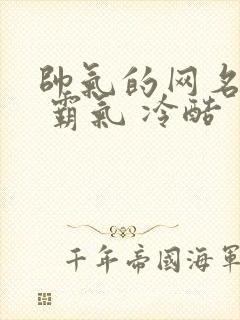 帥氣的网名
霸氣 冷酷
千年帝國海軍